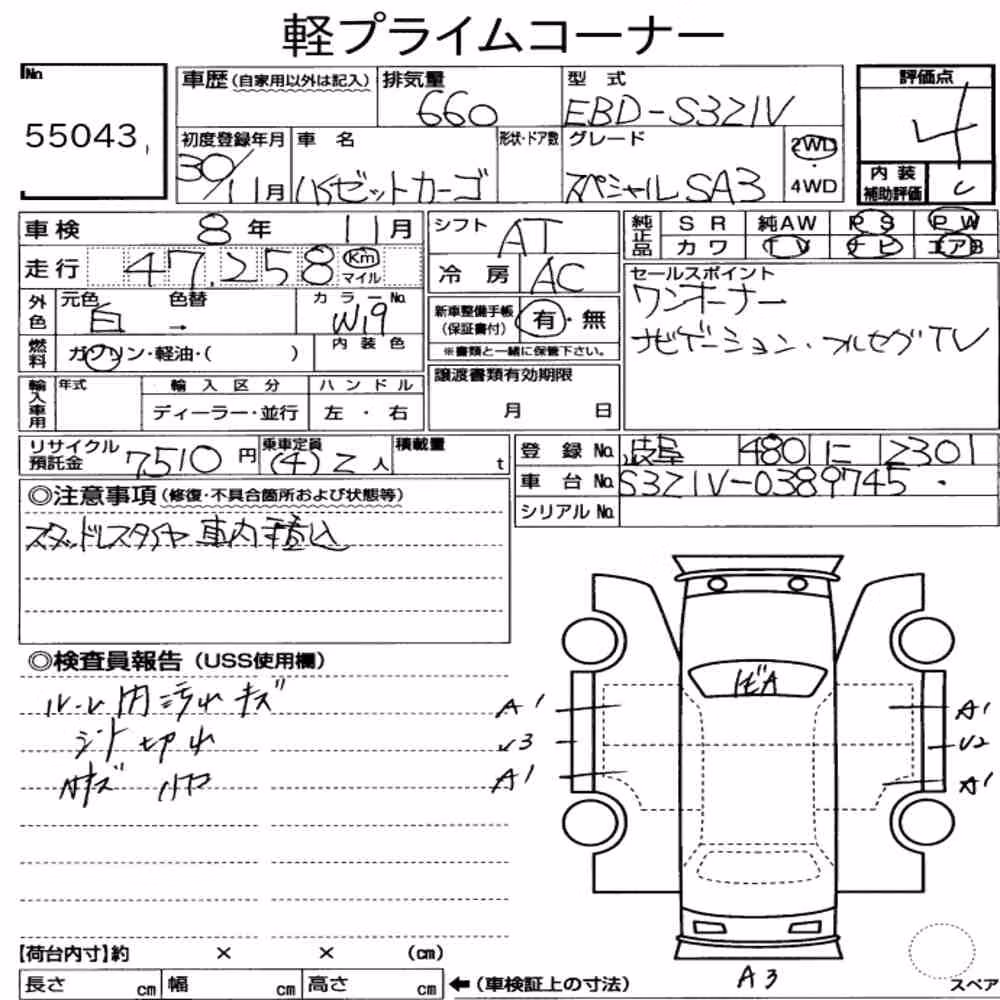 軽プライムコーナー
No. 55043
車歴(自家用以外は記入) 排気量 660 型式 EBD-S321V
初度登録年月 30/11月 車名 ハイゼットカーゴ 形状・ドア数 グレード スペシャルSA3 2WD・4WD
評価点 4
内装補助評価 C
車検 8年 11月
走行 47,258 Km マイル
外色 元色 白 色替 → カラーNo. W19
燃料 ガソリン・軽油・( ) 内装色
輸入車用 年式 輸入区分 ディーラー・並行 ハンドル 左・右
シフト AT
冷房 AC
新車整備手帳(保証書付) 有・無
※書類と一緒に保管下さい。
譲渡書類有効期限
月 日
純正品 SR 純AW PS PW
カワ TV ナビ エアB
セールスポイント
ワンオーナー
ナビゲーション・フルセグTV
リサイクル預託金 7510円 乗車定員 (4) 2人 積載量 t
登録No. 岐阜 480 に 2301
車台No. S321V-0389745
シリアルNo.
◎注意事項(修復・不具合箇所および状態等)
スタッドレスタイヤ車内積込
◎検査員報告(USS使用欄)
ルーム内汚れキズ
シート切れ
飛A
A1 A1
U3 U2
A1 A1
A3
スペア
【荷台内寸】約 × × (cm)
長さ cm 幅 cm 高さ cm ←(車検証上の寸法)